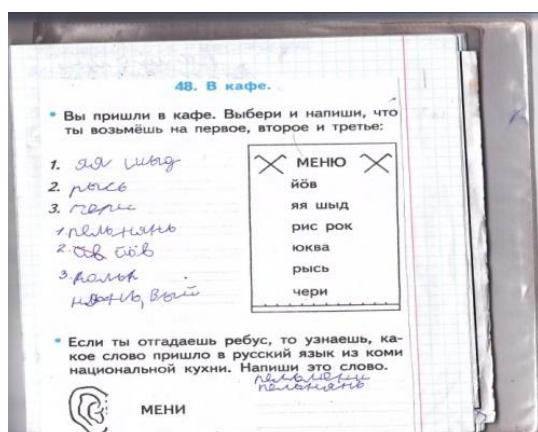 48. В кафе.
• Вы пришли в кафе. Выбери и напиши, что
ты возьмёшь на первое, второе и третье:
1. яя шыд
2. рысь
3. чери
1 пельнянь
2. йӧв
3.
нянь, вый
МЕНЮ
йӧв
яя шыд
рис рок
юква
рысь
чери
• Если ты отгадаешь ребус, то узнаешь, ка-
кое слово пришло в русский язык из коми
национальной кухни. Напиши это слово.
пельмени
пельнянь
МЕНИ